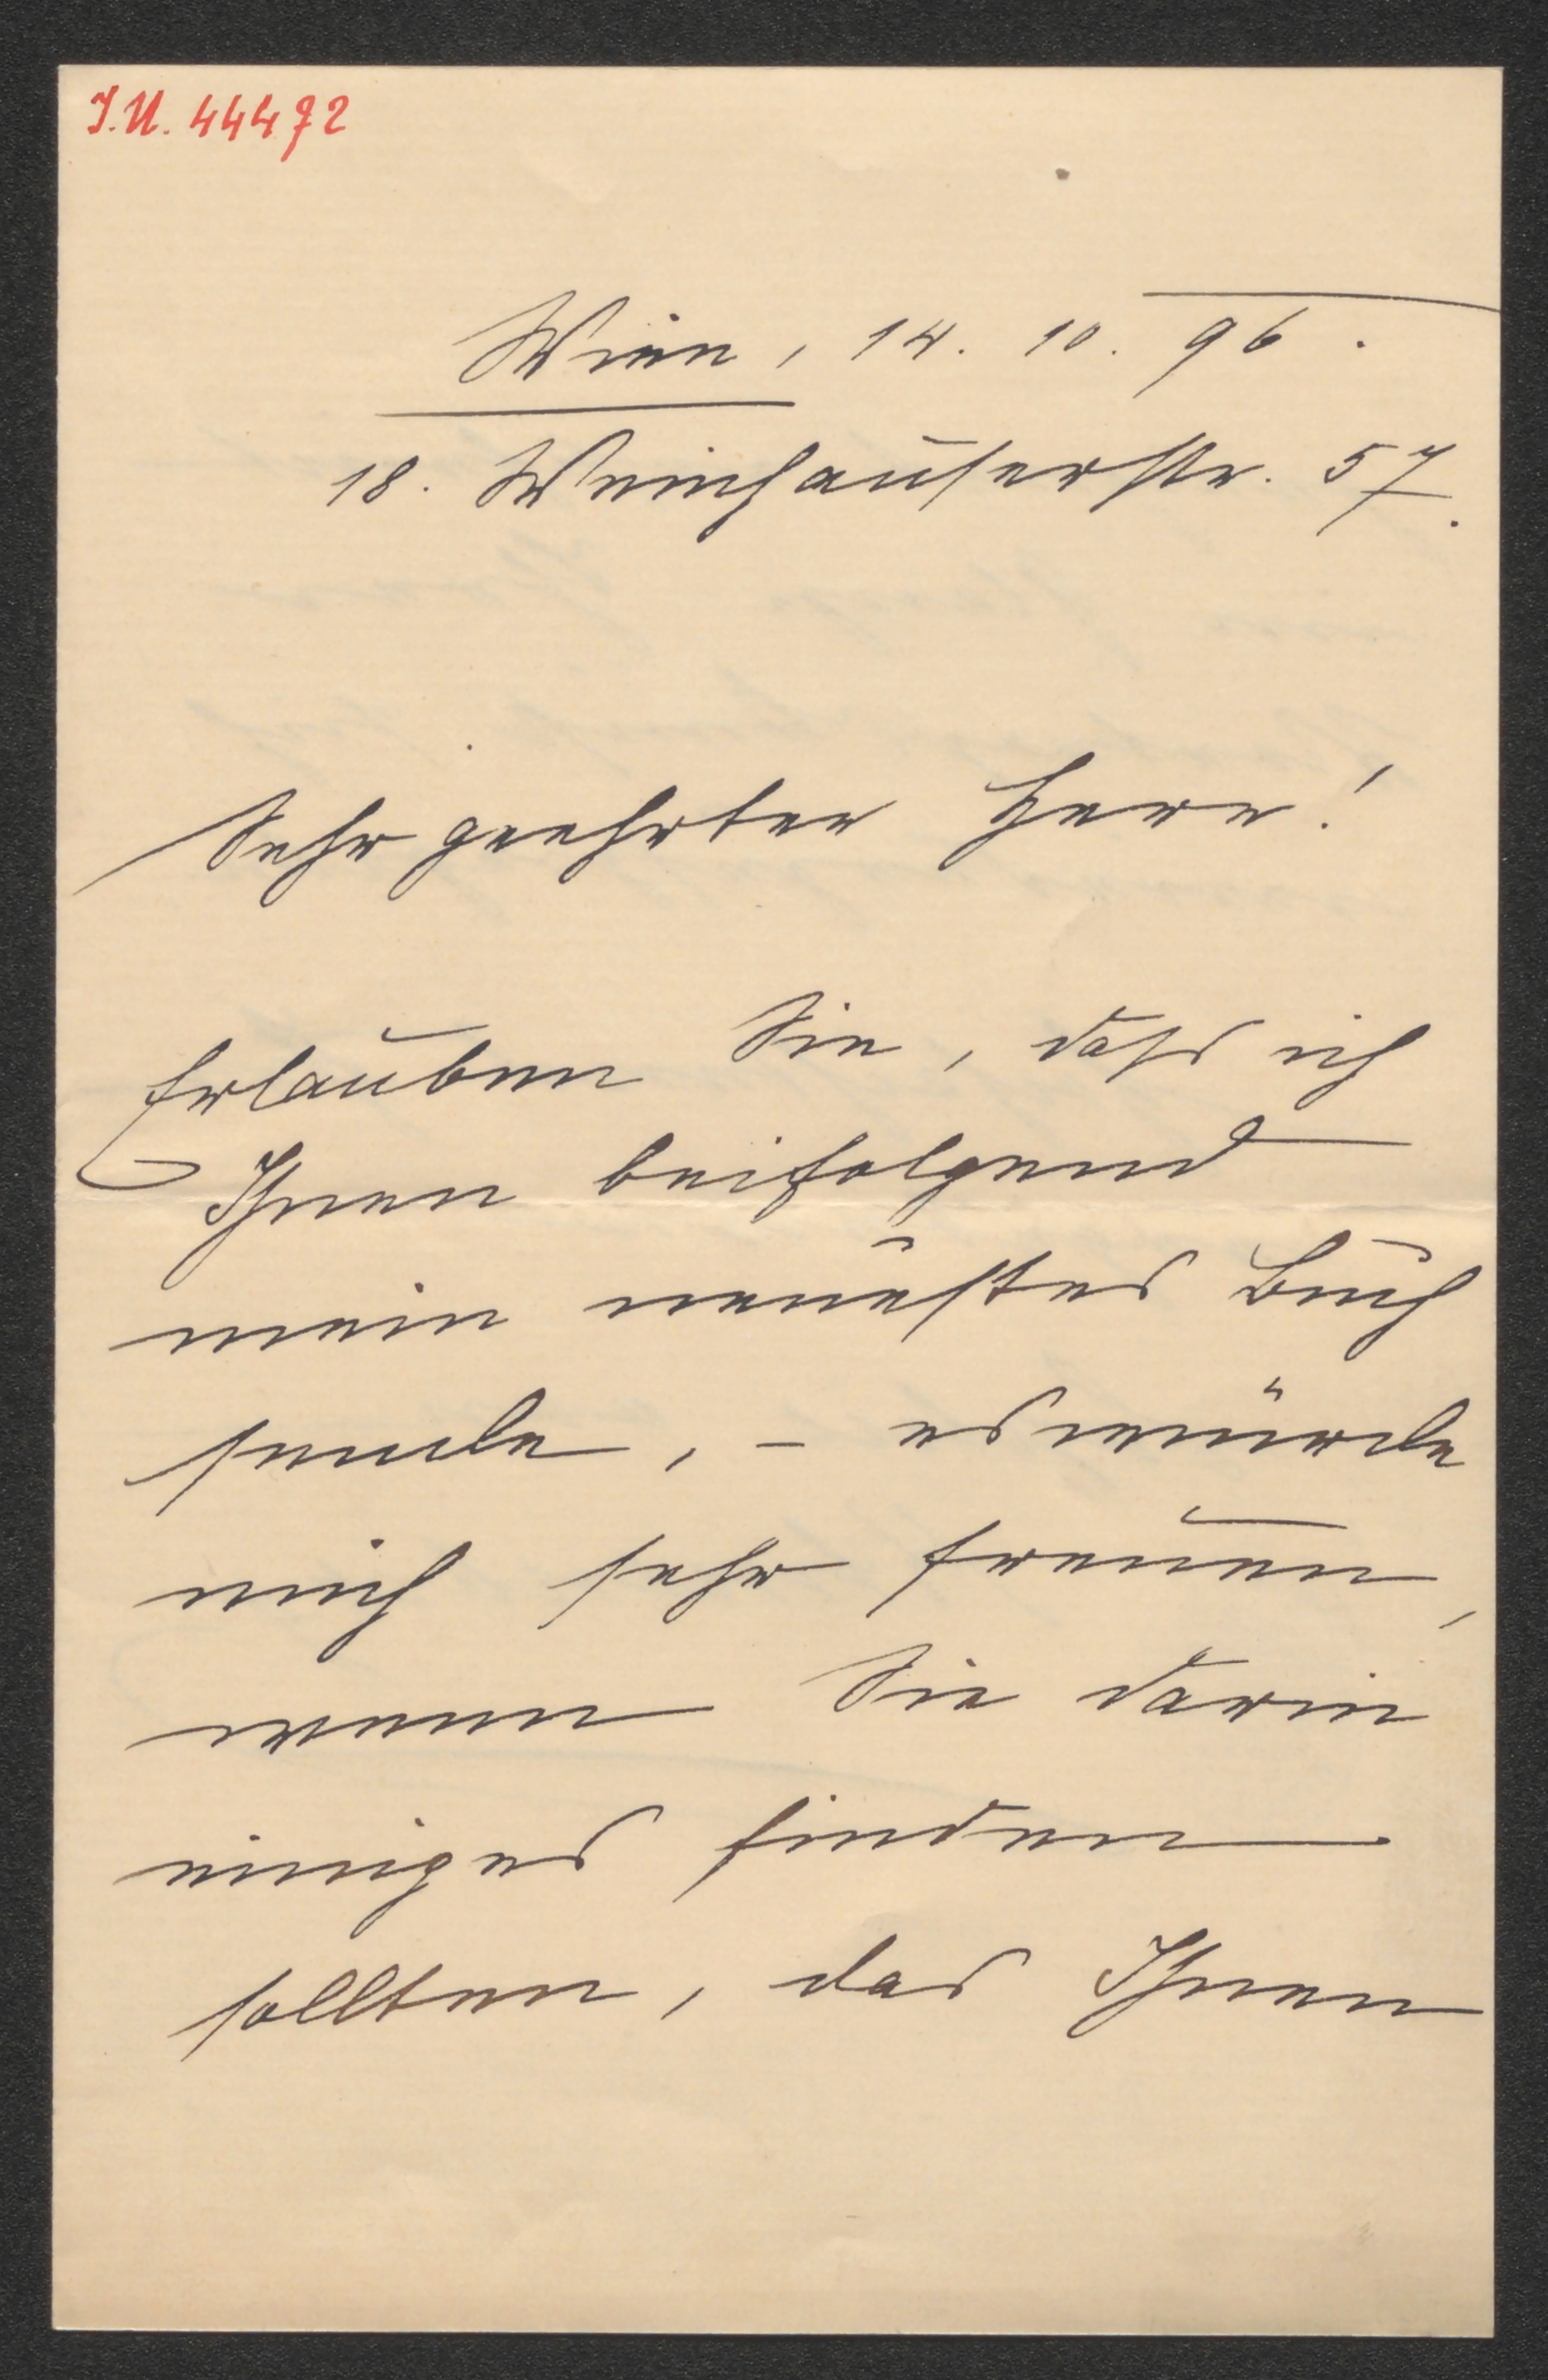 I.N. 44472
Wien, 14. 10. 96.
18. Weinhauserstr. 57.
Sehr geehrter Herr!
Erlauben Sie, dass ich
Ihnen beifolgend
mein neuestes Buch
sende, – es würde
mich sehr freuen,
wenn Sie darin
einiges finden
sollten, das Ihnen